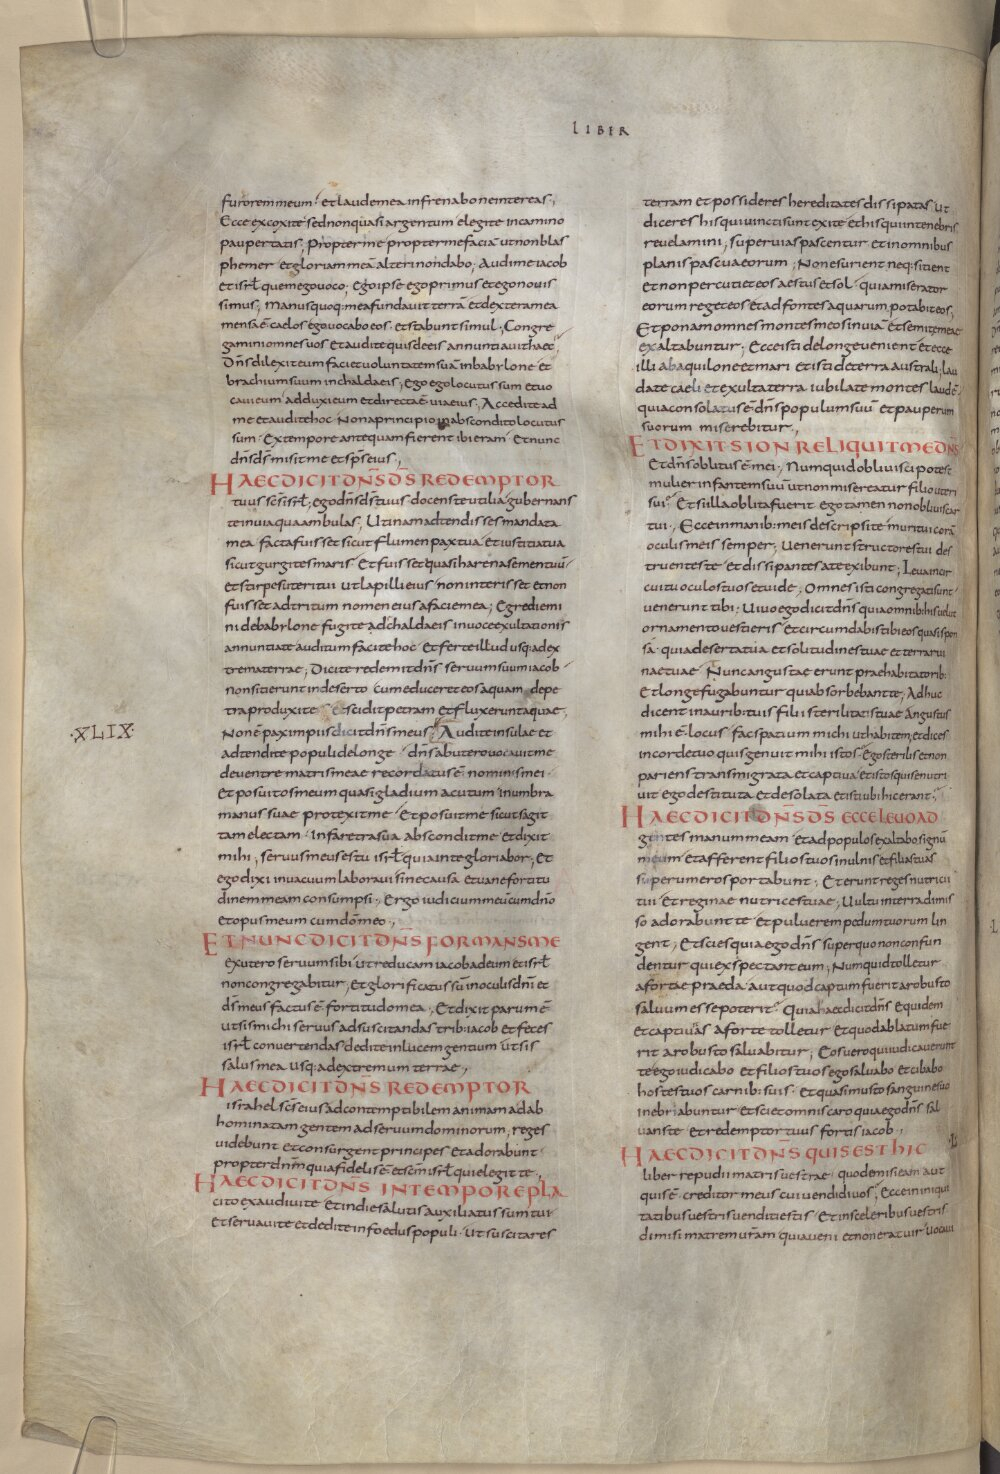 LIBER
furorem meum · et laude mea infrenabo ne intereas ;
Ecce excoxi te sed non quasi argentum elegi te in camino
paupertatis ; Propter me propter me faciā ut non blas
phemer et gloriam meā alteri non dabo ; Audi me iacob
et isrł quem ego uoco ; ego ipse ego primus et ego nouis
simus ; Manus quoq; mea fundauit terrā et dextera mea
mensa ē caelos ego uocabo eos et stabunt simul ; Congre
gamini omnes uos et audite quis de eis annuntiauit haec ;
Dn̄s dilexit eum faciet uoluntatem suā in babylone et
brachium suum in chaldaeis ; Ego ego locutus sum et uo
caui eum adduxi eum et directa ē uia eius ; Accedite ad
me et audite hoc Non a principio in abscondito locutus
sum · Ex tempore antequam fierent ibi eram · Et nunc
dn̄s ds̄ misit me et sp̄s eius ;
HAEC DICIT DN̄S DS̄ REDEMPTOR
tuus sc̄s isrł ; ego dn̄s ds̄ tuus docens te utilia gubernans
te in uia qua ambulas ; Utinam adtendisses mandata
mea facta fuisset sicut flumen pax tua et iustitia tua
sicut gurgites maris · Et fuisset quasi harena semen tuū
et stirps uteri tui ut lapilli eius non interisset et non
fuisset adtritum nomen eius a facie mea ; Egredimi
ni de babylone fugite a chaldaeis in uoce exultationis
annuntiate auditum facite hoc · Et ferte illud usq; ad ex
trema terrae ; Dicite redemit dn̄s seruum suum iacob
non sitierunt in deserto cum educeret eos aquam de pe
tra produxit eis · et scidit petram et fluxerunt aquae ;
Non ē pax impiis dicit dn̄s meus Audite insulae et
·XLIX·
adtendite populi de longe · dn̄s ab utero uocauit me
de uentre matris meae recordatus ē nominis mei ·
Et posuit os meum quasi gladium acutum in umbra
manus suae protexit me · Et posuit me sicut sagit
tam electam · In faretra sua abscondit me et dixit
mihi ; seruus meus es tu isrł quia in te gloriabor ; Et
ego dixi in uacuum laboraui sine causa et uane fortitu
dinem meam consumpsi ; Ergo iudicium meū cum dn̄o
et opus meum cum dō meo ;
ET NUNC DICIT DN̄S FORMANS ME
ex utero seruum sibi ut reducam iacob ad eum et isrł
non congregabitur ; Et glorificatus sū in oculis dn̄i et
ds̄ meus factus ē fortitudo mea ; Et dixit parum ē
ut sis michi seruus ad suscitandas trib; iacob et feces
isrł conuertendas dedi te in lucem gentium ut sis
salus mea usq; ad extremum terrae ;
HAEC DICIT DN̄S REDEMPTOR
israhel sc̄s eius ad contemptibilem animam ad ab
hominatam gentem ad seruum dominorum ; reges
uidebunt et consurgent principes et adorabunt
propter dn̄m quia fidelis ē et sc̄m isrł qui elegit te ;
HAEC DICIT DN̄S IN TEMPORE PLA
cito exaudiui te · Et in die salutis auxiliatus sum tui ·
Et seruaui te et dedi te in foedus populi · Ut suscitares
terram et possideres hereditates dissipatas Ut
diceres his qui uincti sunt exite et his qui in tenebris
reuelamini ; super uias pascentur et in omnibus
planis pascua eorum ; Non esurient neq; sitient
et non percutiet eos aestus et sol · quia miserator
eorum reget eos et ad fontes aquarum potabit eos ;
Et ponam omnes montes meos in uiā et semitae meae
exaltabuntur ; Ecce isti de longe uenient et ecce
illi ab aquilone et mari et isti de terra australi ; lau
date caeli et exulta terra iubilate montes laudē ·
quia consolatus ē dn̄s populum suū et pauperum
suorum miserebitur ;
ET DIXIT SION RELIQUIT ME DN̄S
Et dn̄s oblitus ē mei · Numquid obliuisci potest
mulier infantem suū ut non misereatur filio uteri
sui · Et si illa oblita fuerit ego tamen non obliuiscar
tui ; Ecce in manib; meis descripsi te muri tui corā
oculis meis semper ; Uenerunt structores tui des
truentes te et dissipantes a te exibunt ; Leua in cir
cuitu oculos tuos et uide ; Omnes isti congregati sunt
uenerunt tibi ; Uiuo ego dicit dn̄s quia omnib; his uelut
ornamento uestieris · Et circumdabis tibi eos quasi spon
sā · quia deserta tua et solitudines tuae et terra rui
nae tuae · Nunc angusta erunt prae habitatorib;
Et longe fugabuntur qui absorbebant te ; Adhuc
dicent in aurib; tuis filii sterilitatis tuae Angustus
mihi ē locus fac spatium michi ut habitem et dices
in corde tuo quis genuit mihi istos · Ego sterilis et non
pariens transmigrata et captiua et istos quis enutri
uit ego destituta et desolata et isti ubi hic erant ;
HAEC DICIT DN̄S DS̄ ECCE LEUO AD
gentes manum meam et ad populos exaltabo signū
meum et afferent filios tuos in ulnis et filias tuas
super umeros portabunt ; Et erunt reges nutricii
tui et reginae nutrices tuae ; Uultu in terra dimis
so adorabunt te et puluerem pedum tuorum lin
gent ; Et scies quia ego dn̄s super quo non confun
dentur qui expectant eum ; Numquid tolletur
a forte praeda aut quod captum fuerit a robusto
saluum esse poterit · Quia haec dicit dn̄s equidem
et captiuitas a forte tolletur et quod ablatum fue
rit a robusto saluabitur ; Eos uero qui iudicauerunt
te ego iudicabo et filios tuos ego saluabo et cibabo
hostes tuos carnib; suis · Et quasi musto sanguine suo
inebriabuntur et sciet omnis caro quia ego dn̄s sal
uans te et redemptor tuus fortis iacob ;
·L·
HAEC DICIT DN̄S QUIS EST HIC
liber repudii matris uestrae · quo dimisi eam aut
quis ē creditor meus cui uendidi uos ; Ecce in iniqui
tatibus uestris uenditi estis · Et in sceleribus uestris
dimisi matrem ur̄am quia ueni et non erat uir uocaui